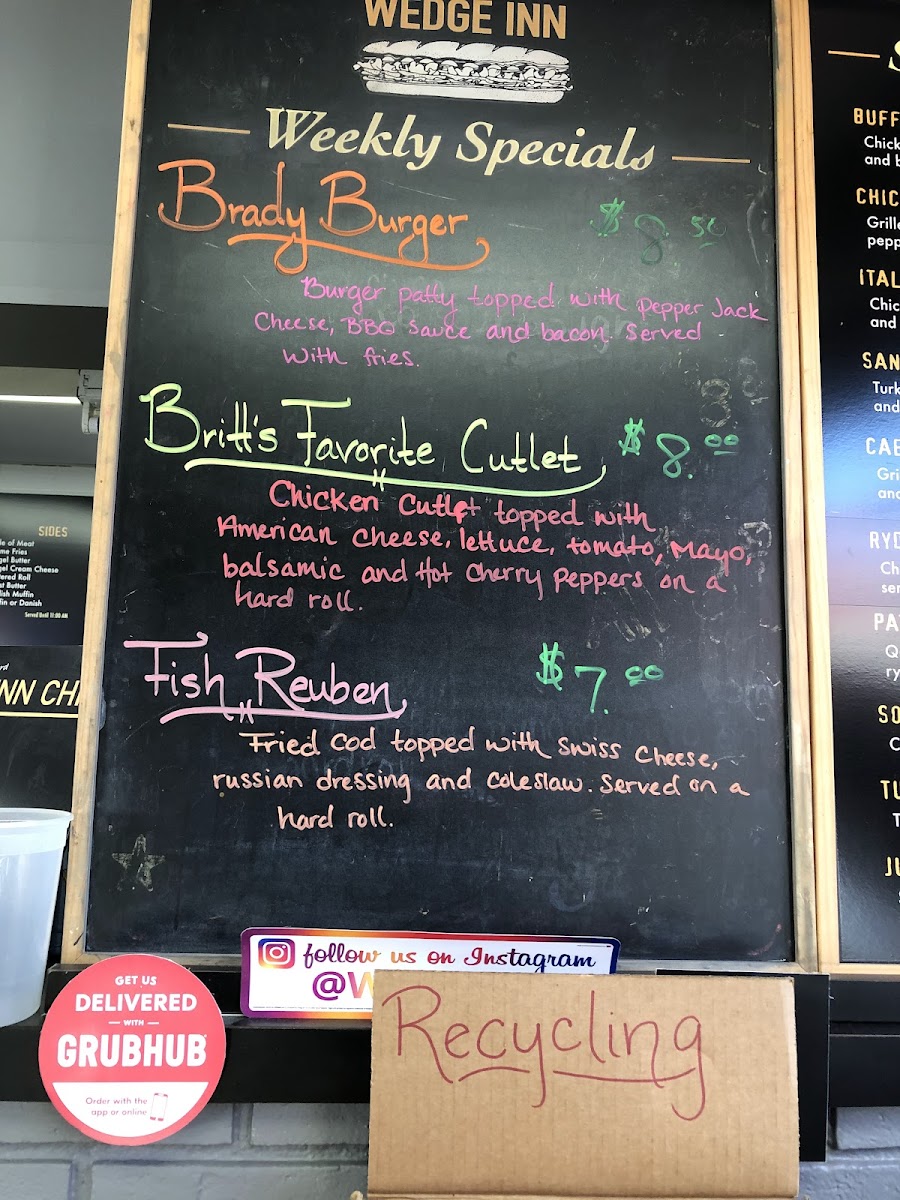 WEDGE INN
Weekly Specials
Brady Burger $8.50
Burger patty topped with pepper Jack
Cheese, BBQ sauce and bacon. Served
with fries.
Britt's Favorite Cutlet $8.00
Chicken Cutlet topped with
American cheese, lettuce, tomato, Mayo,
balsamic and Hot Cherry Peppers on a
hard roll.
Fish Reuben $7.00
Fried Cod topped with Swiss Cheese,
russian dressing and coleslaw. Served on a
hard roll.
follow us on Instagram
@W
Recycling
GET US
DELIVERED
WITH
GRUBHUB
Order with the
app or online
SIDES
of Meat
Fries
Butter
Cream Cheese
Roll
Butter
Muffin
or Danish
Served Until 11:00 AM
INN CH
BUFF
Chick
and b
CHIC
Grille
pepp
ITAL
Chic
and
SAN
Turk
and
CAB
Gri
and
RYD
Ch
ser
PA
Q
ry
SO
C
TU
T
JU